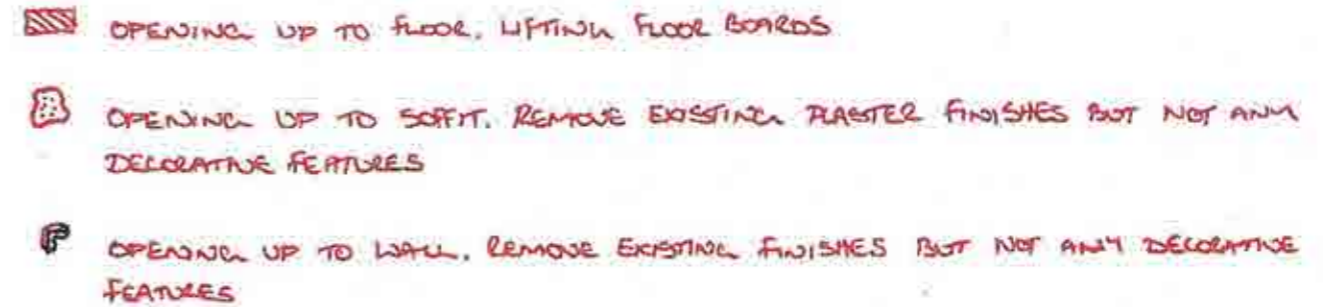 OPENING UP TO FLOOR. LIFTING FLOOR BOARDS
OPENING UP TO SOFFIT. REMOVE EXISTING PLASTER FINISHES BUT NOT ANY
DECORATIVE FEATURES
OPENING UP TO WALL. REMOVE EXISTING FINISHES BUT NOT ANY DECORATIVE
FEATURES